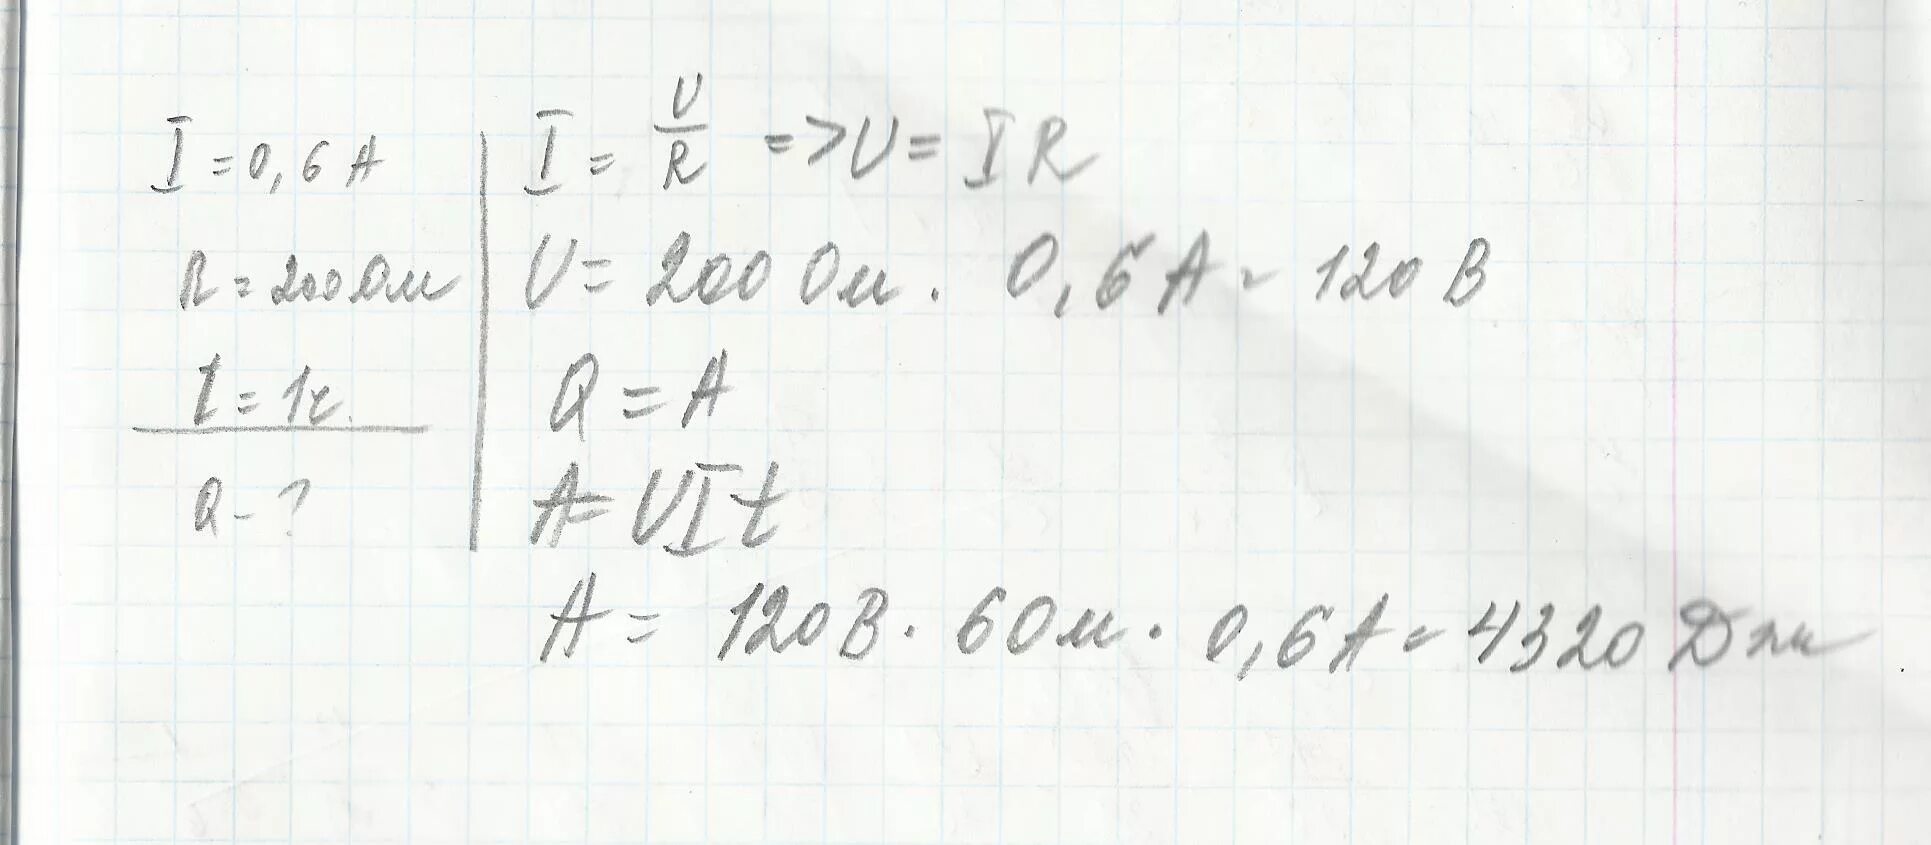 I = 0,6 А
R = 200 Ом
t = 1ч.
Q - ?
I = U/R => U = I R
U = 200 Ом · 0,6 А = 120 В
Q = A
A = UIt
A = 120 В · 60м · 0,6 А = 4320 Дж